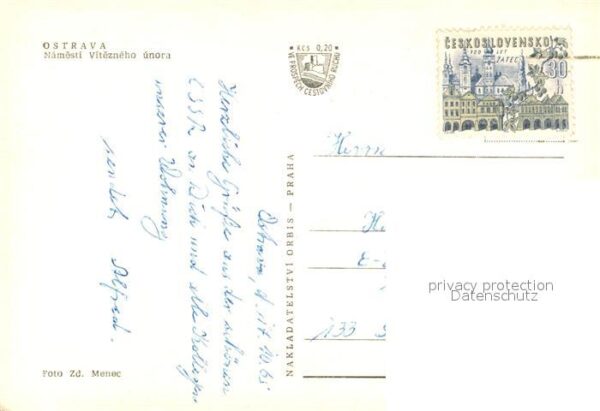 OSTRAVA
Náměstí Vítězného února
Kčs 0,20
VE PROSPĚCH CESTOVNÍHO RUCHU
ČESKOSLOVENSKO
700 LET
ŽATEC
30
Ostrava, d. 17.10.65
Herzliche Grüße aus der schönen
ČSSR an Dich und alle Kollegen
unserer
sendet Alfred.
NAKLADATELSTVÍ ORBIS — PRAHA
Herrn
H
E-
133
privacy protection
Datenschutz
Foto Zd. Menec